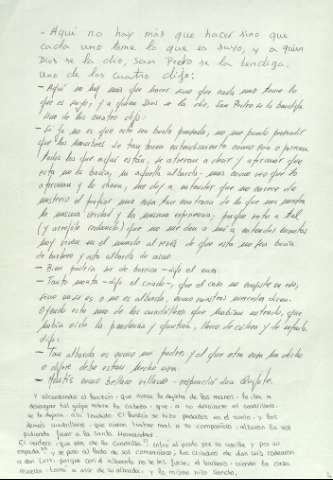 - Aquí no hay más que hacer sino que
cada uno tome lo que es suyo, y a quien
Dios se la dio, San Pedro se la bendiga.
Uno de los cuatro dijo:
- Aquí no hay más que hacer sino que cada uno tome lo
que es suyo, y a quien Dios se la dio, San Pedro se la bendiga
Uno de los cuatro dijo:
- Si ya no es que esto sea burla pensada, no me puedo persuadir
que los hombres de tan buen entendimiento como son o parecen
todos los que aquí están, se atrevan a decir y afirmar que
esta no es bacía, ni aquella albarda; mas como veo que lo
afirman y lo dicen, me doy a entender que no carece de
misterio el porfiar una cosa tan contraria de lo que nos muestra
la misma verdad y la misma experiencia; porque voto a tal
(y arrojóle redondo) que no me den a mí a entender cuantos
hoy viven en el mundo al revés de que esta no sea bacía
de barbero y esta albarda de asno.
- Bien podría ser de borrica - dijo el cura.
- Tanto monta - dijo el criado -, que el caso no consiste en eso,
sino en si es o no es albarda, como vuestras mercedes dicen.
Oyendo esto uno de los cuadrilleros que habían entrado, que
había oído la pendencia y quistión, lleno de cólera y de enfado
dijo:
- Tan albarda es como mi padre, y el que otra cosa ha dicho
o dijere debe estar hecho uva.
- Mentís como bellaco villano - respondió don Quijote.
Y alzando el lanzón, que nunca le dejaba de las manos, le iba a
descargar tal golpe sobre la cabeza, que, a no desviarse el cuadrillero,
se le dejara allí tendido. El lanzón se hizo pedazos en el suelo, y los
demás cuadrilleros, que vieron tratar mal a su compañero, alzaron la voz
pidiendo favor a la Santa Hermandad.
entró al punto por su varilla y por su
espada, y se puso al lado de sus compañeros; los criados de don Luis rodearon
a don Luis, porque con el alboroto no se les fuese; el barbero, viendo la casa
revuelta, tornó a asir de su albarda, y lo mismo hizo Sancho;